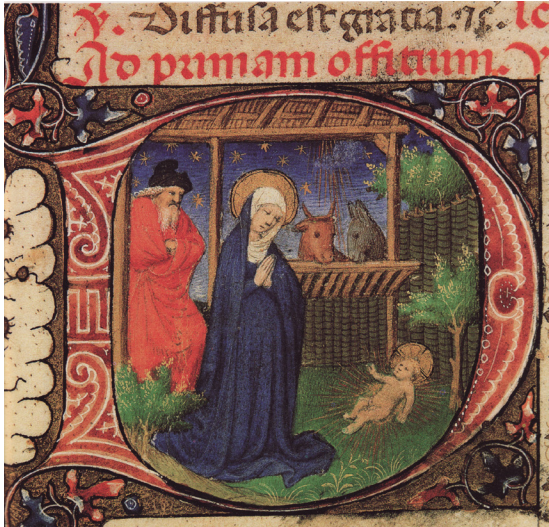 ℣. Diffusa est gracia. ⁊c. lc
Ad primam offitium. V
D